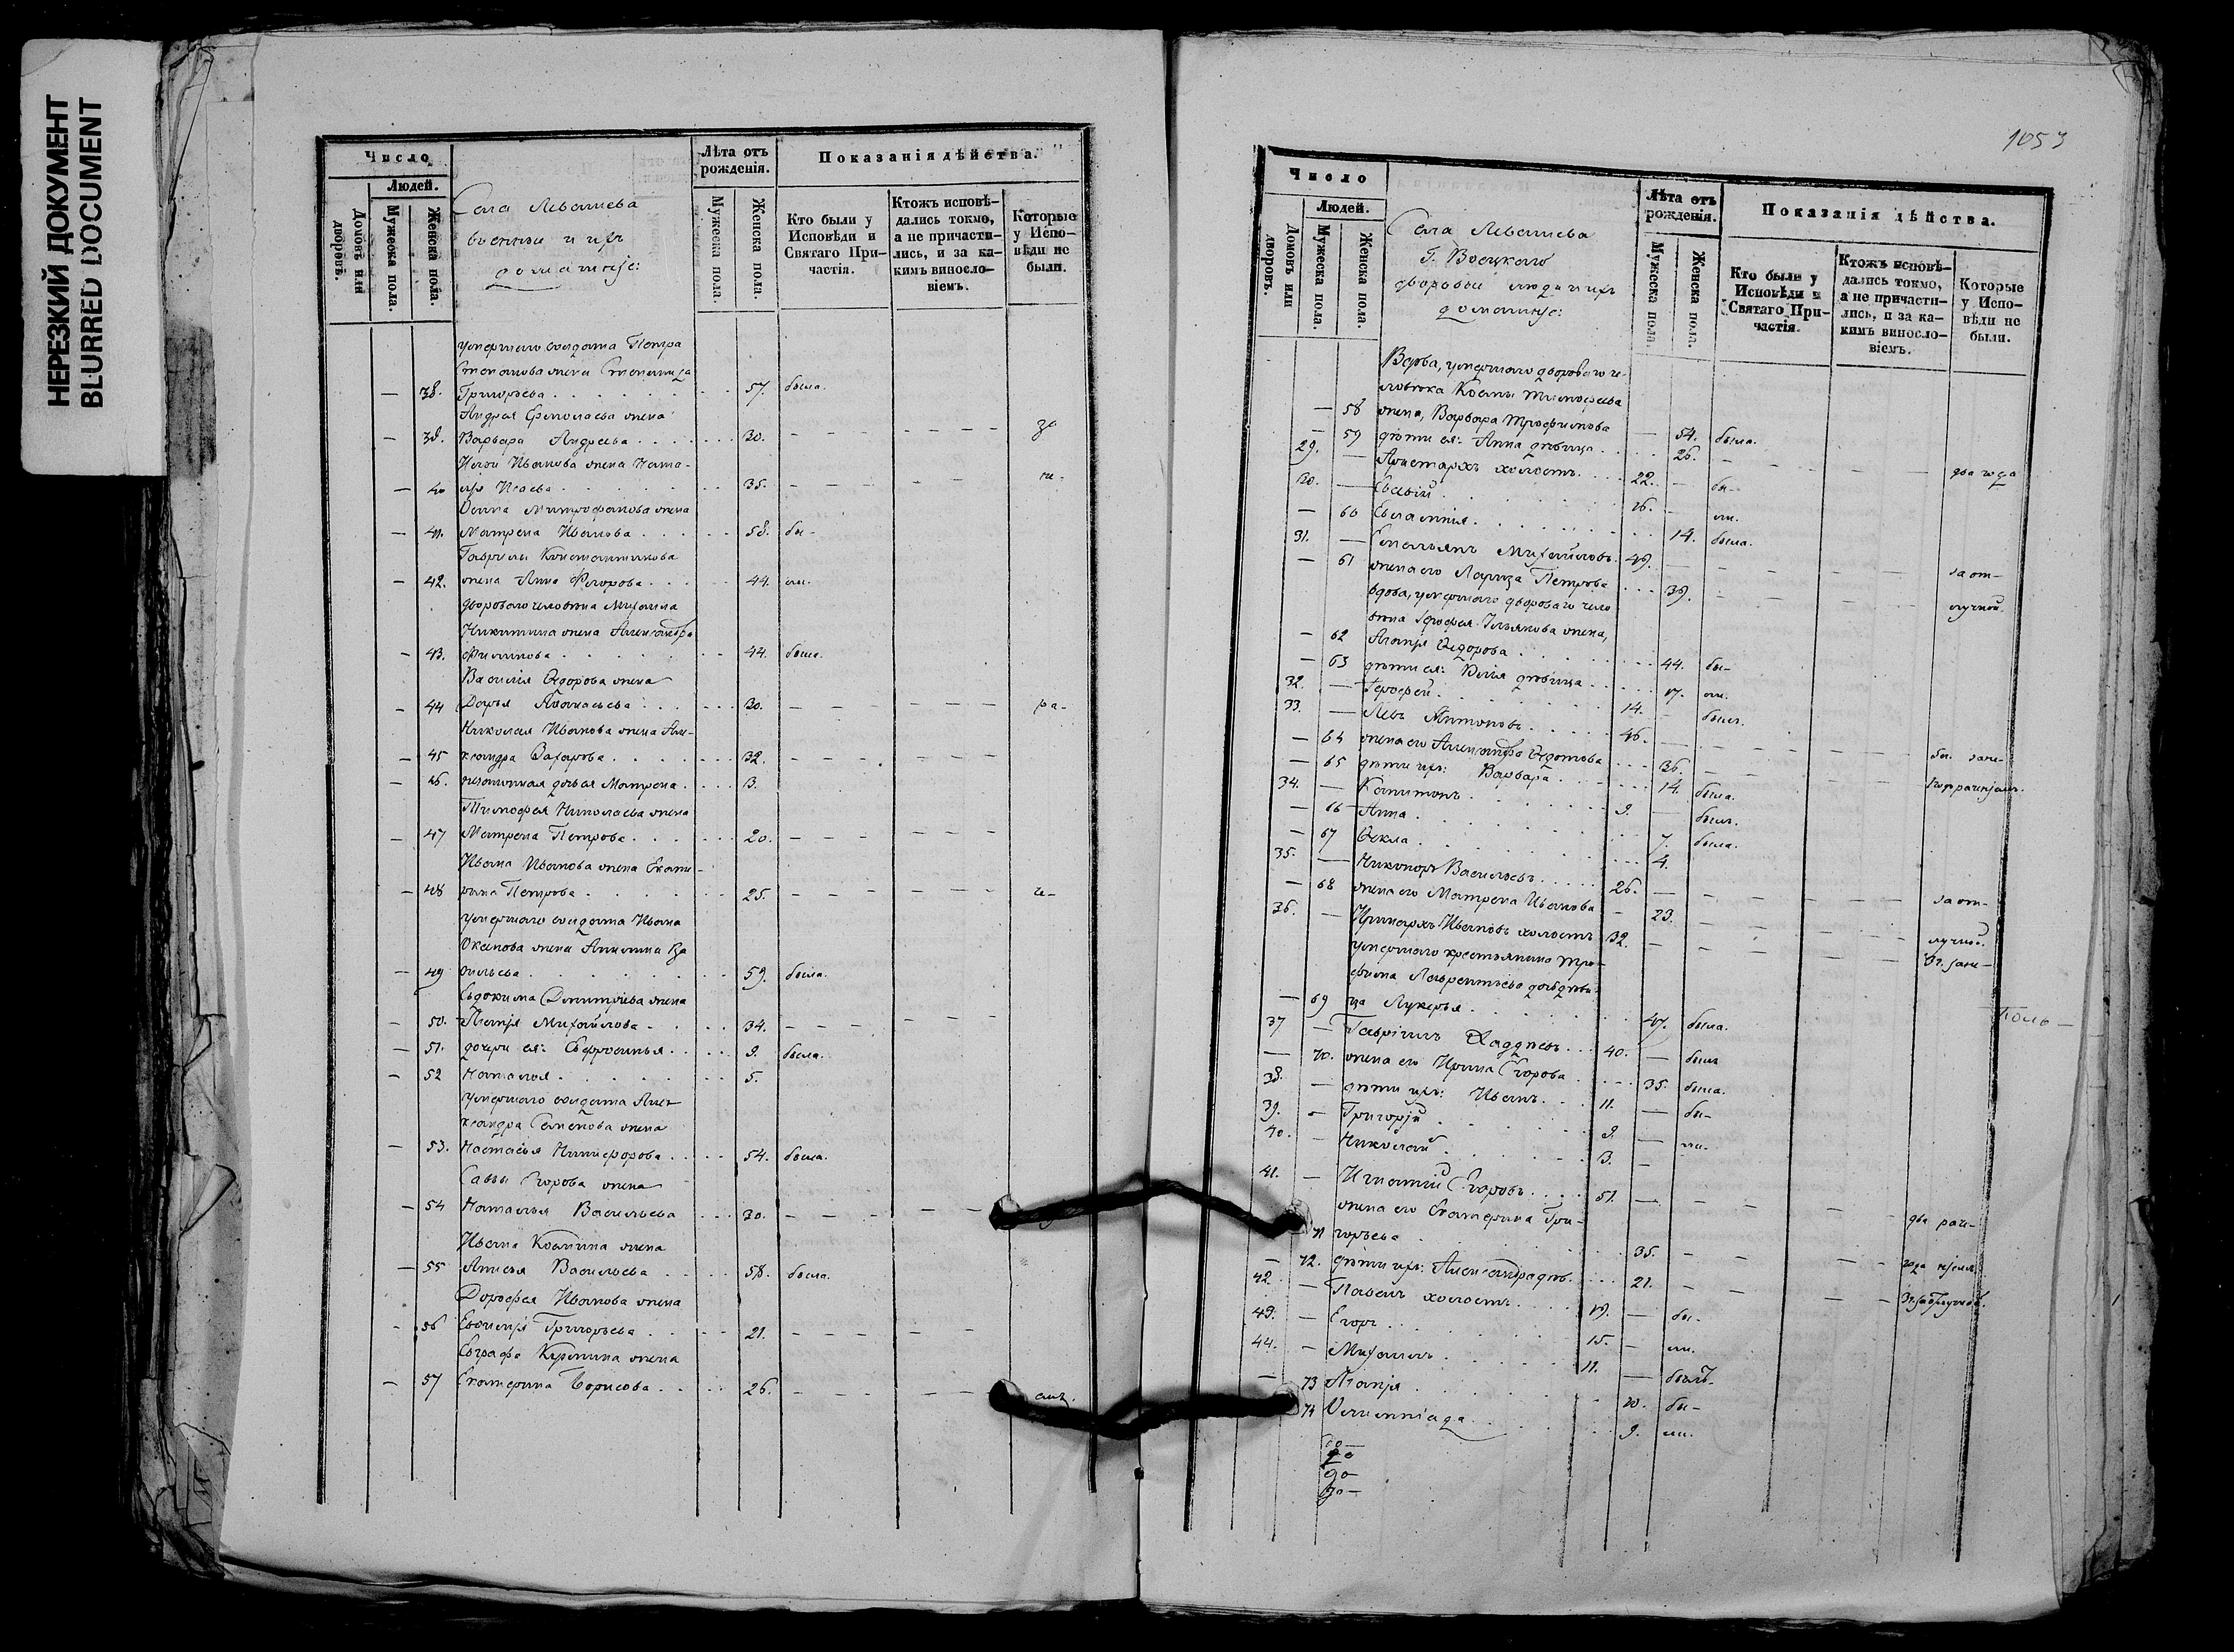 НЕРЕЗКИЙ ДОКУМЕНТ
BLURRED DOCUMENT
Число
Людей.
Домовъ или дворовъ.
Мужеска пола.
Женска пола.
Села Левашева
военныи и ихъ
домашніе:
Лѣта отъ рожденія.
Мужеска пола.
Женска пола.
Показанія дѣйства.
Кто были у Исповѣди и Святаго Причастія.
Ктожъ исповѣдались токмо, а не причастились, и за какимъ винословіемъ.
Которые у Исповѣди не были.
умершаго солдата Петра
Степанова жена Степанида
— 38. Григорьева 57. была.
Андрея Ермолаева жена
— 39. Варвара Андреева 30. — — — — — — за
Ильи Иванова жена Ната-
— 40 лья Исаева 35. — — — — —
Осипа Митрофанова жена
— 41. Матрена Иванова 58. бы-
Гаврилы Константинова
— 42. жена Анна Федорова 44. ли.
двороваго человѣка Михаила
Никитина жена Александра
— 43. Филипова 44. была.
Василія Ѳедорова жена
— 44 Дарья Афанасьева 30. — — — — — — ра-
Николая Иванова жена Але-
— 45 ксандра Захарова 32. — — — — — —
— 46. незаконная дочь ея Матрена 3.
Тимофея Николаева жена
— 47 Матрена Петрова 20. — — — — — —
Ивана Иванова жена Екате-
— 48 рина Петрова 25. — — — — — —
умершаго солдата Ивана
жена Акилина Ва
— 49 сильева 59. была.
Евдокима Дмитріева жена
— 50. Агапія Михайлова 34. — — — — — —
— 51. дочери ея: Ефросинья 9. была.
— 52 Наталья 5.
умершаго солдата Алек-
ксандра Семенова жена
— 53. Настасья Никифорова 54. была.
Савы Егорова жена
— 54 Наталья Васильева 30. — — — — —
Ивана Козмина жена
— 55 Анисья Васильева 58. была.
Дорофея Иванова жена
— 56 Евфимія Григорьева 21. — — — —
Евграфа Курепина жена
— 57 Екатерина Борисова 26. — — —
1053
Число
Людей.
Домовъ или дворовъ.
Мужеска пола.
Женска пола.
Села Левашева
Г. Воецкаго
дворовые люди и ихъ
домашніе:
Лѣта отъ рожденія.
Мужеска пола.
Женска пола.
Показанія дѣйства.
Кто были у Исповѣди и Святаго Причастія.
Ктожъ исповѣдались токмо, а не причастились, и за какимъ винословіемъ.
Которые у Исповѣди не были.
Вдова, умершаго двороваго че-
ловѣка Козмы Тимофеева
— 58 жена, Варвара Трофимова — 54. была.
— 59 дѣти ея: Анна дѣвица 26. — — — — — два года
29. — Аристархъ холостъ 22. — бы-
30. — Евсевій 16. — ли.
— 60 Евлампія 14. была.
31. — Емельянъ Михайловъ 49. — — — — — за от-
— 61 жена его Лариса Петрова 39. — — — — лучкой.
вдова, умершаго двороваго чело
вѣка Ерофея Ульянова жена,
— 62 Агапія Ѳедорова 44. бы-
— 63 дѣти ея: Юлія дѣвица 17. ли.
32. — Ерофей 14. — былъ.
33. — Левъ Антоновъ 46. — — — — —
— 64 жена его Александра Ѳедотова 36. — — — —
— 65 дѣти ихъ: Варвара 14. была.
34. — Капитонъ 9. — былъ.
— 66 Анна 7. была.
— 67 Ѳекла 4.
35. — Никаноръ Васильевъ 26. — — — — — за от-
— 68 жена его Матрена Иванова — 23. — — — — лучкой.
36. — Иринархъ Ивановъ холостъ 32. — — — — —
умершаго крестьянина Тро-
фима Лаврентьева дочь дѣви-
— 69 ца Лукерья 47. была.
37 — Гавріилъ Ѳаддѣевъ 40. — былъ
— 70. жена его Ирина Егорова 35. была.
38. — дѣти ихъ: Иванъ 11. — бы-
39. — Григорій 9. — ли.
40. — Николай 3. —
41. — Игнатій Егоровъ 51. — — — — —
жена его Екатерина Гри-
71 горьева 35. — — — —
— 72. дѣти ихъ: Александра дѣв. 21. — — — —
42. — Павелъ холостъ 19. — бы-
43. — Егоръ 15. — ли.
44. — Михаилъ 11. — былъ.
— 73 Агапія 10. бы-
74 Олимпіада 9. ли.